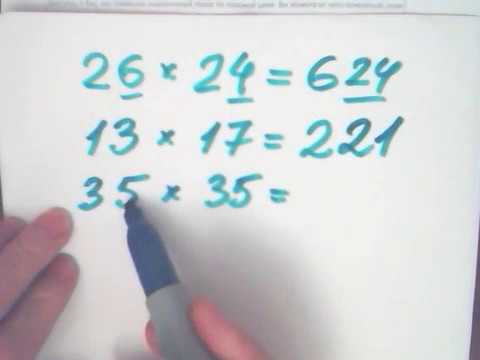 26 × 24 = 624
13 × 17 = 221
35 × 35 =